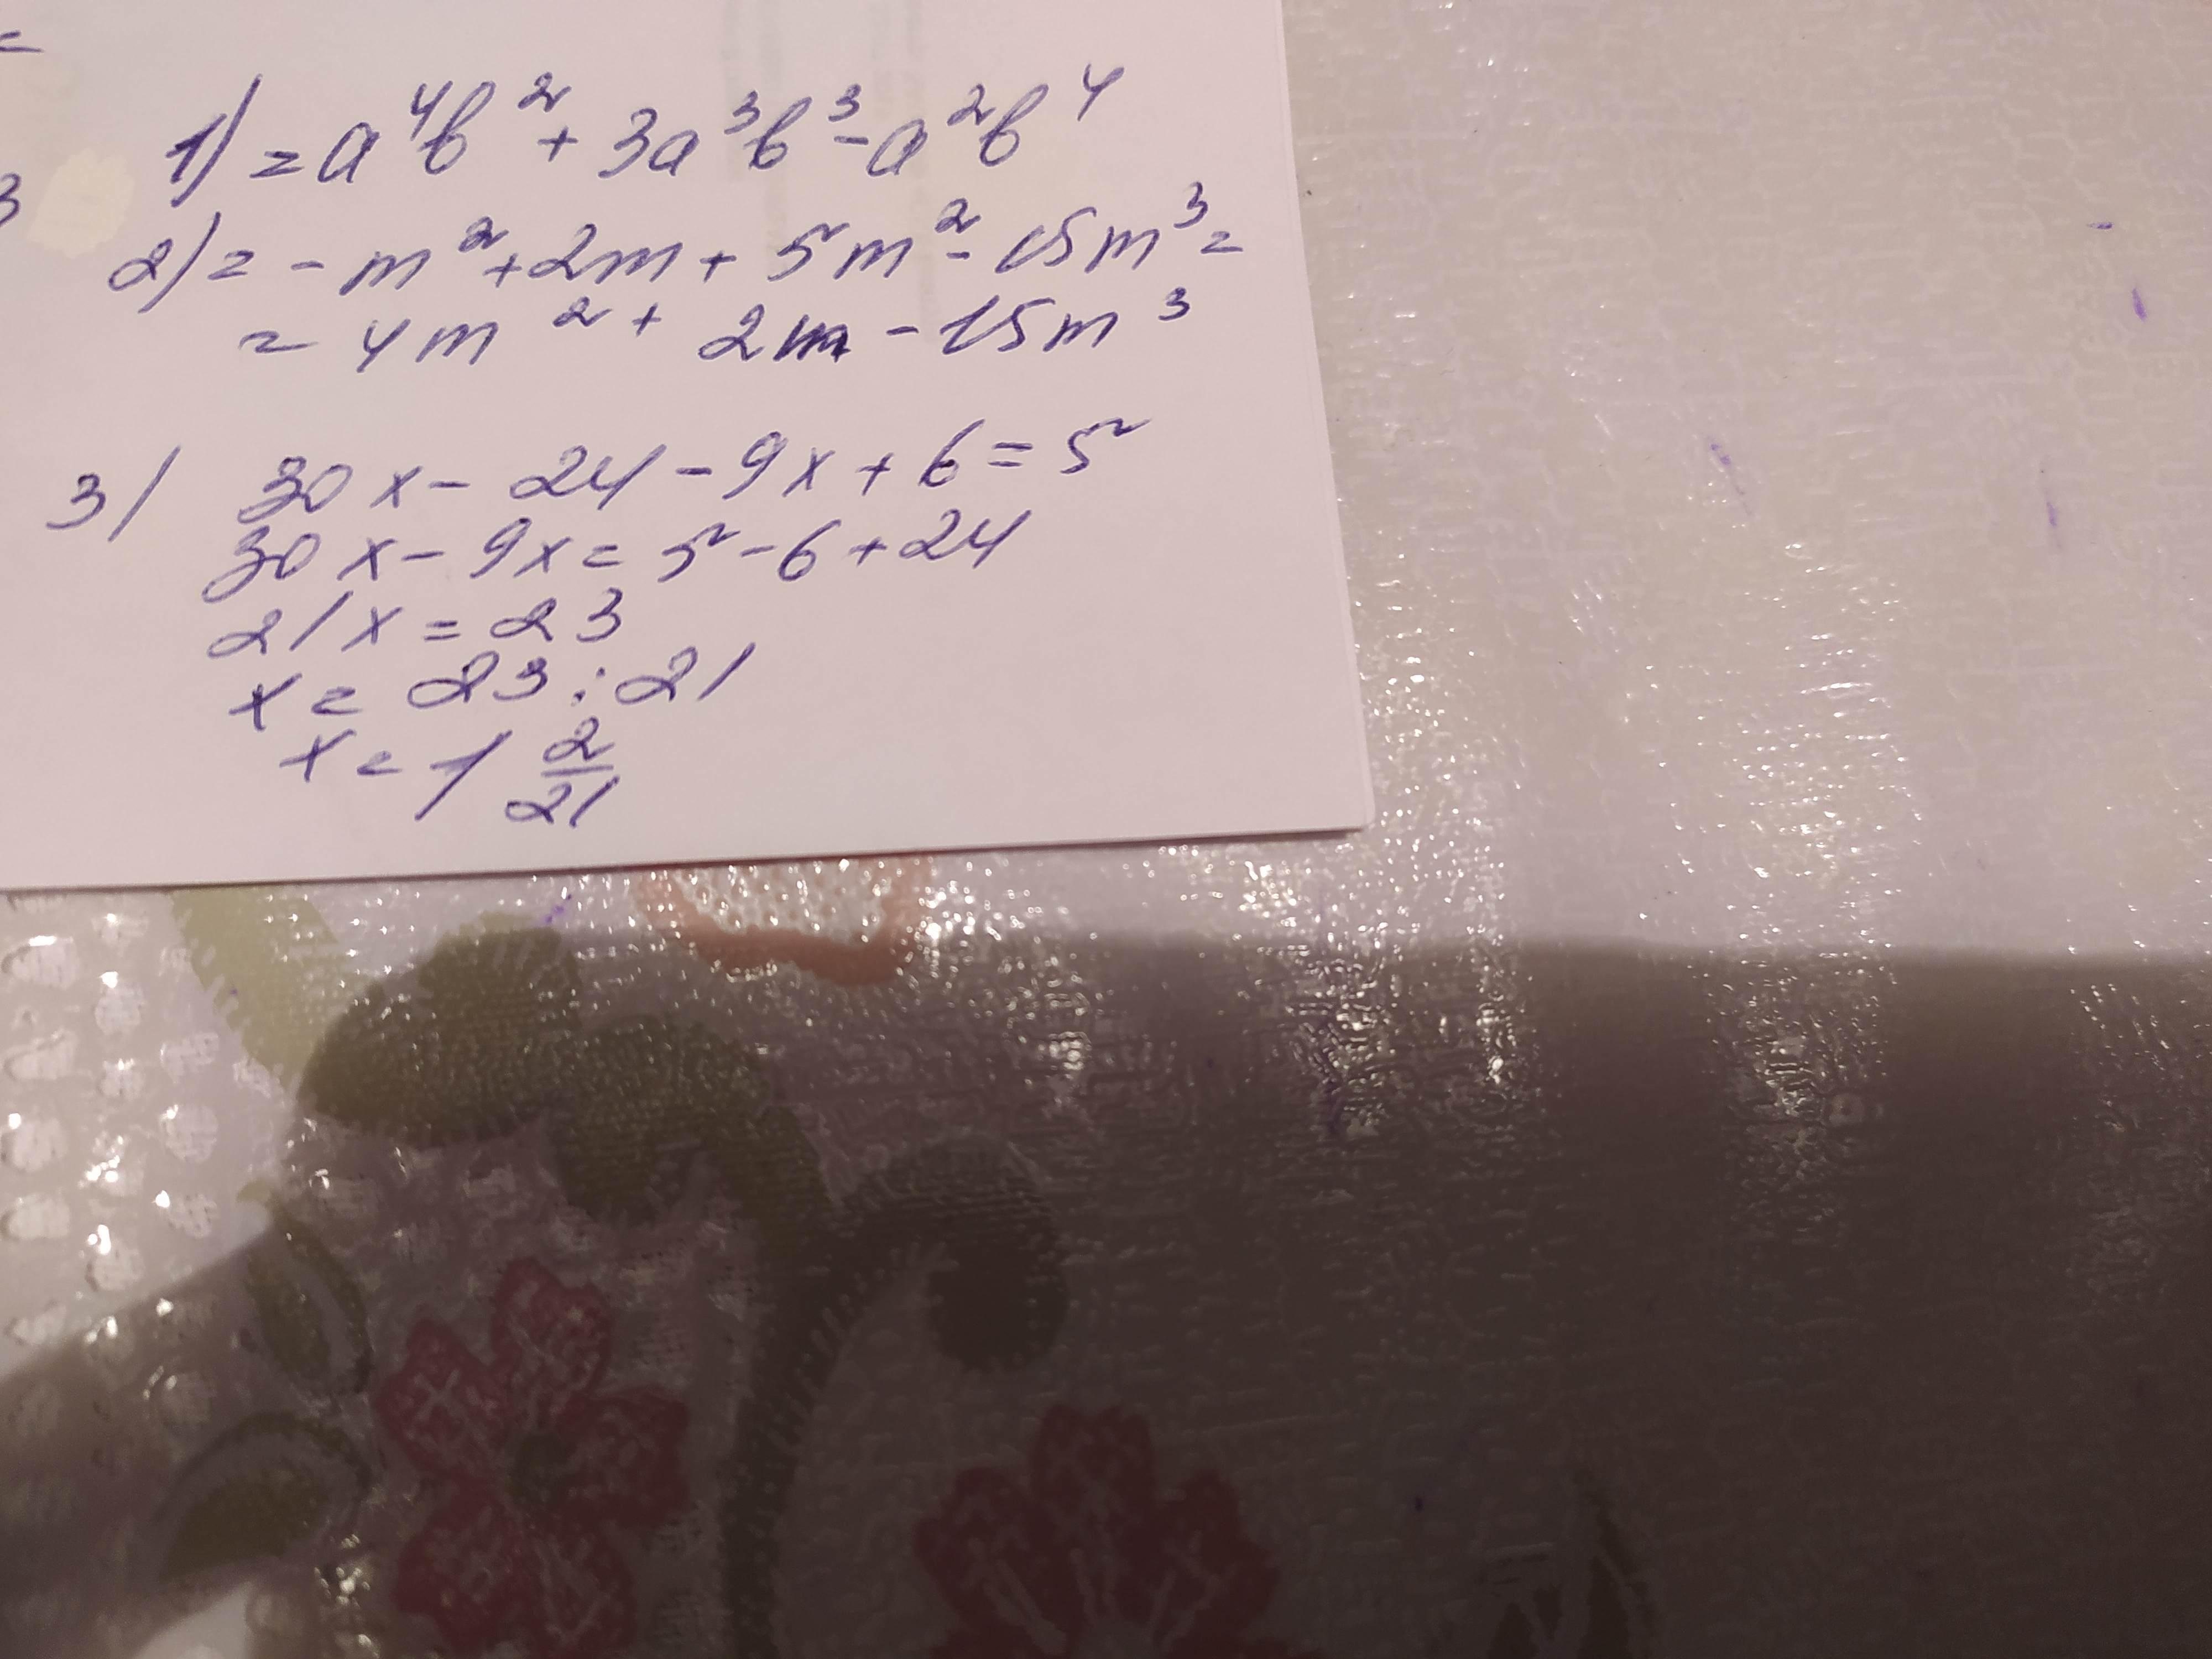 =
3
1) = a⁴b² + 3a³b³ - a²b⁴
2) = - m² + 2m + 5m² - 15m³ =
= 4m² + 2m - 15m³
3) 30x - 24 - 9x + 6 = 5
30x - 9x = 5 - 6 + 24
21x = 23
x = 23 : 21
x = 1 2/21